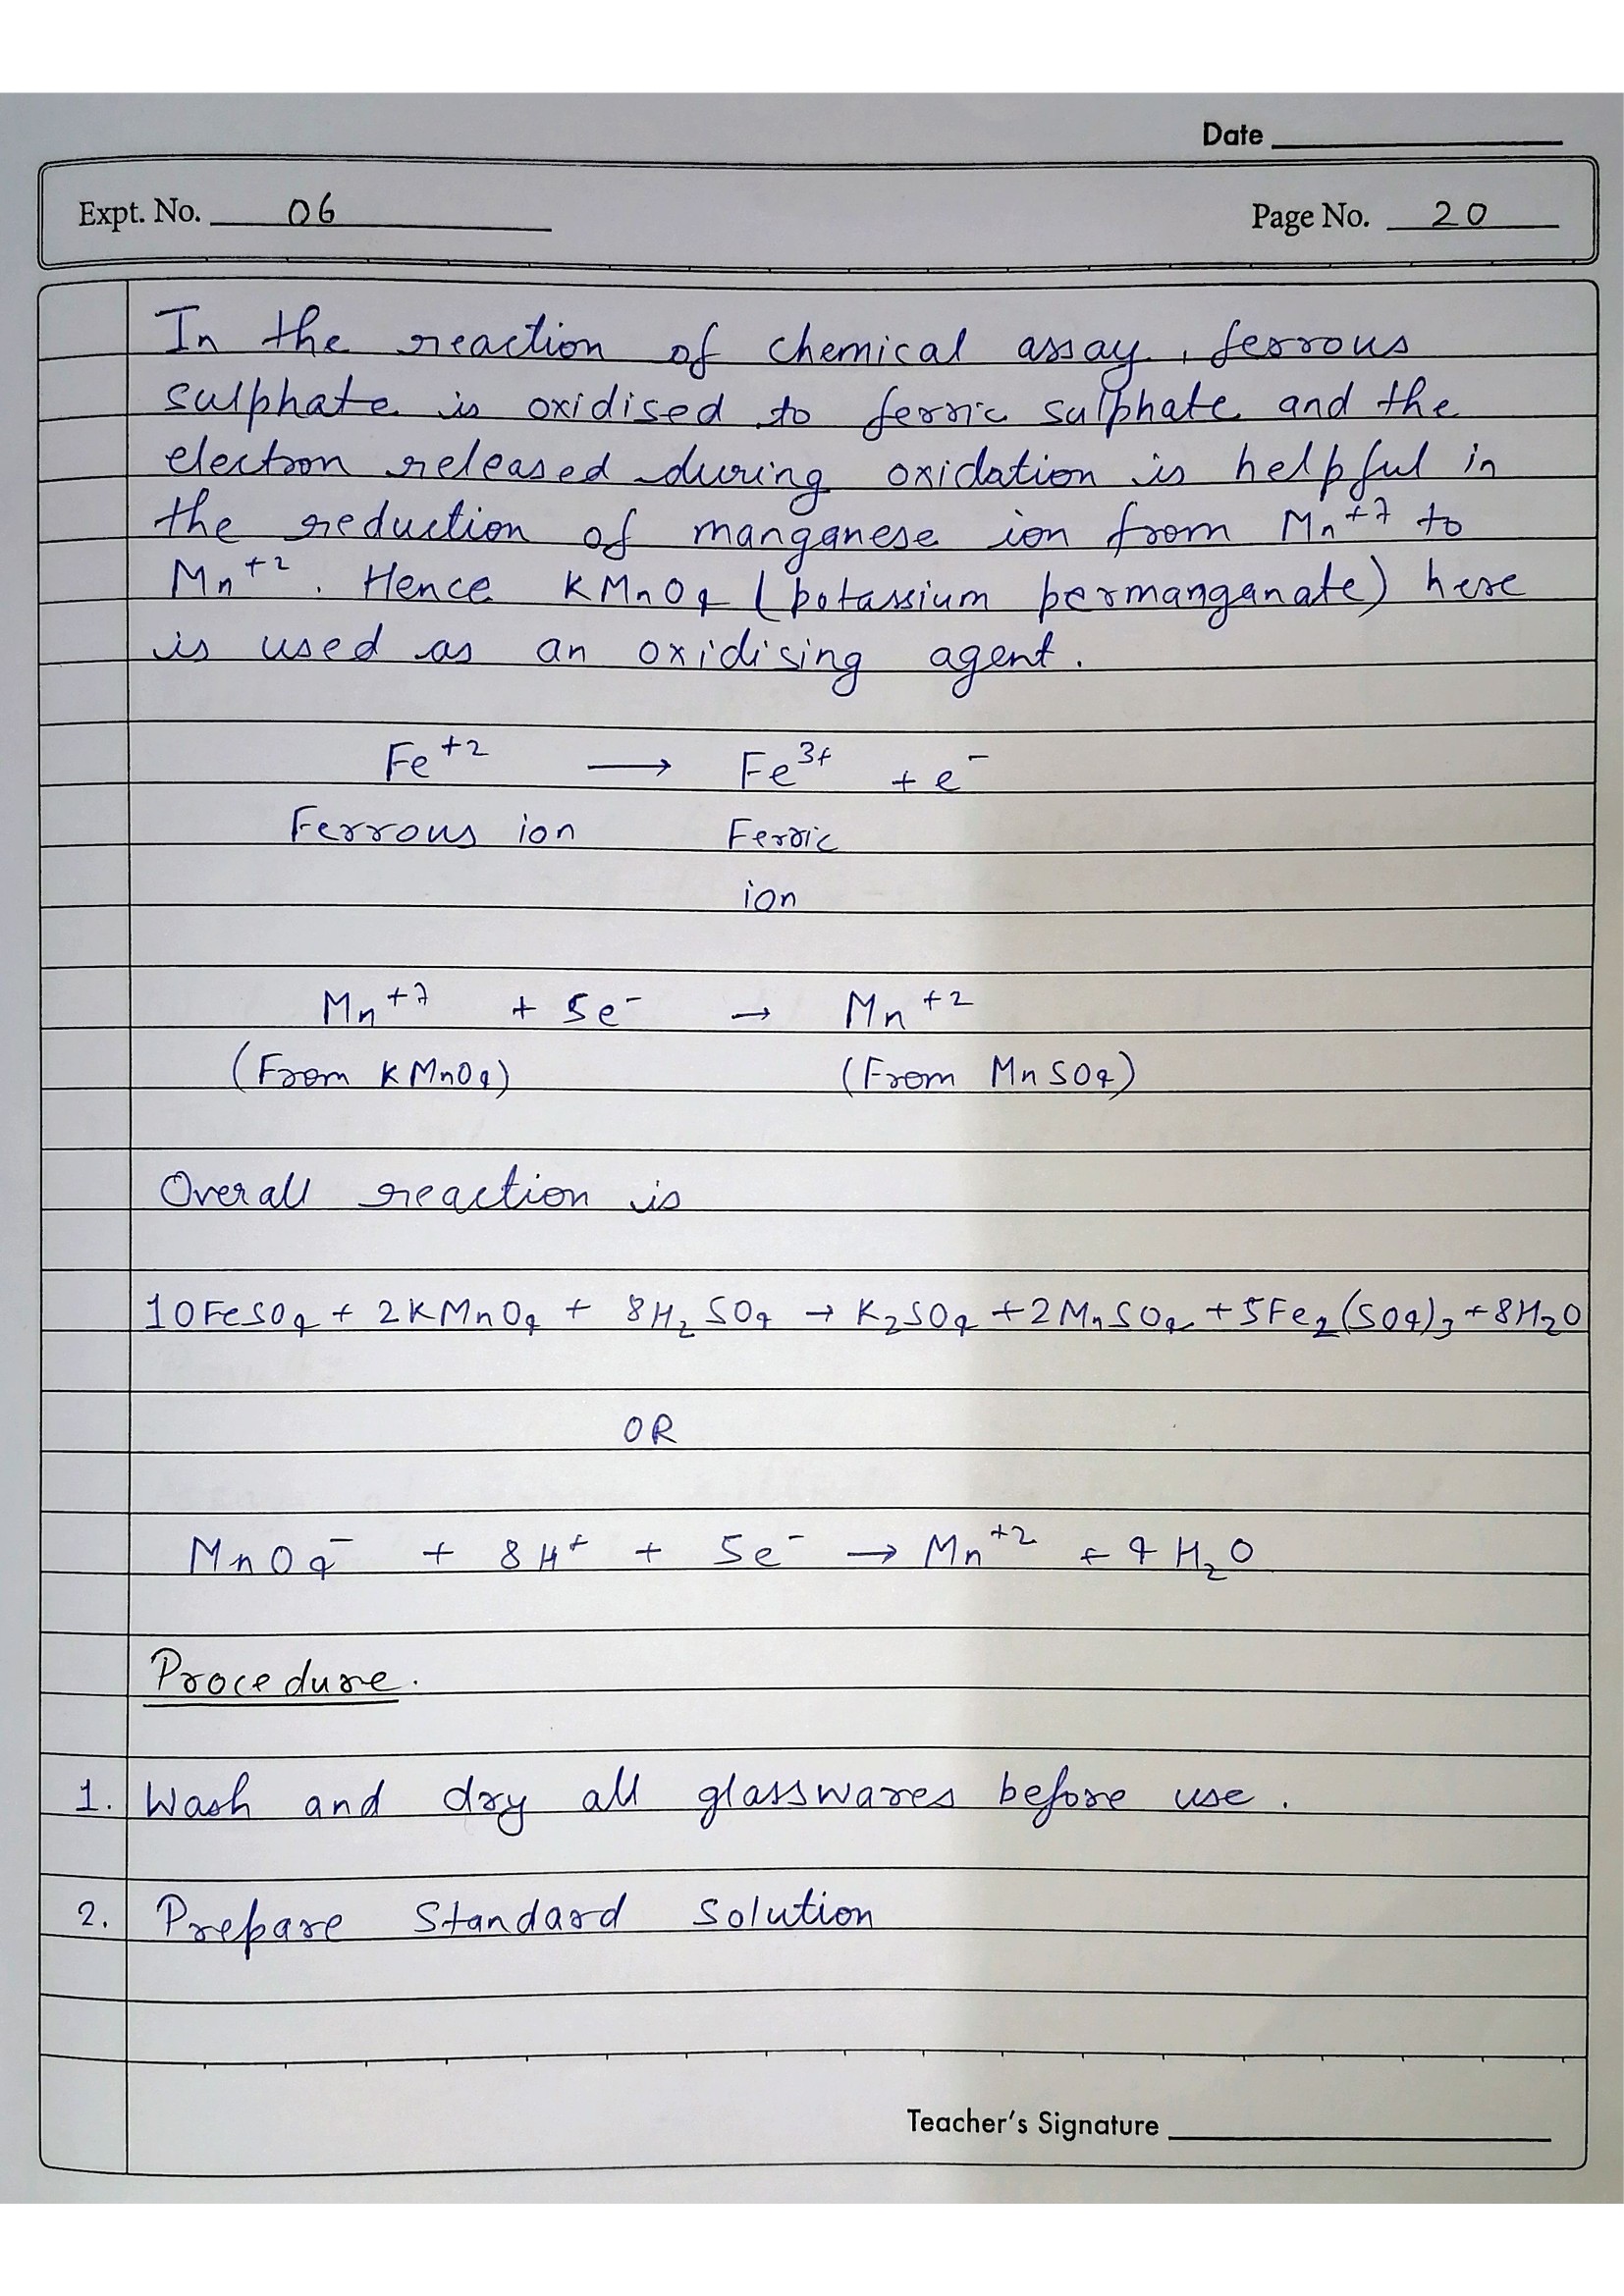 Date
Expt. No. 06 Page No. 20
In the reaction of chemical assay, ferrous
sulphate is oxidised to ferric sulphate and the
electron released during oxidation is helpful in
the reduction of manganese ion from Mn⁺⁷ to
Mn⁺². Hence KMnO₄ (potassium permanganate) here
is used as an oxidising agent.
Fe⁺² → Fe³⁺ + e⁻
Ferrous ion Ferric
ion
Mn⁺⁷ + 5e⁻ → Mn⁺²
(From KMnO₄) (From MnSO₄)
Overall reaction is
10FeSO₄ + 2KMnO₄ + 8H₂SO₄ → K₂SO₄ + 2MnSO₄ + 5Fe₂(SO₄)₃ + 8H₂O
OR
MnO₄⁻ + 8H⁺ + 5e⁻ → Mn⁺² + 4H₂O
Procedure.
1. Wash and dry all glasswares before use.
2. Prepare Standard Solution
Teacher's Signature